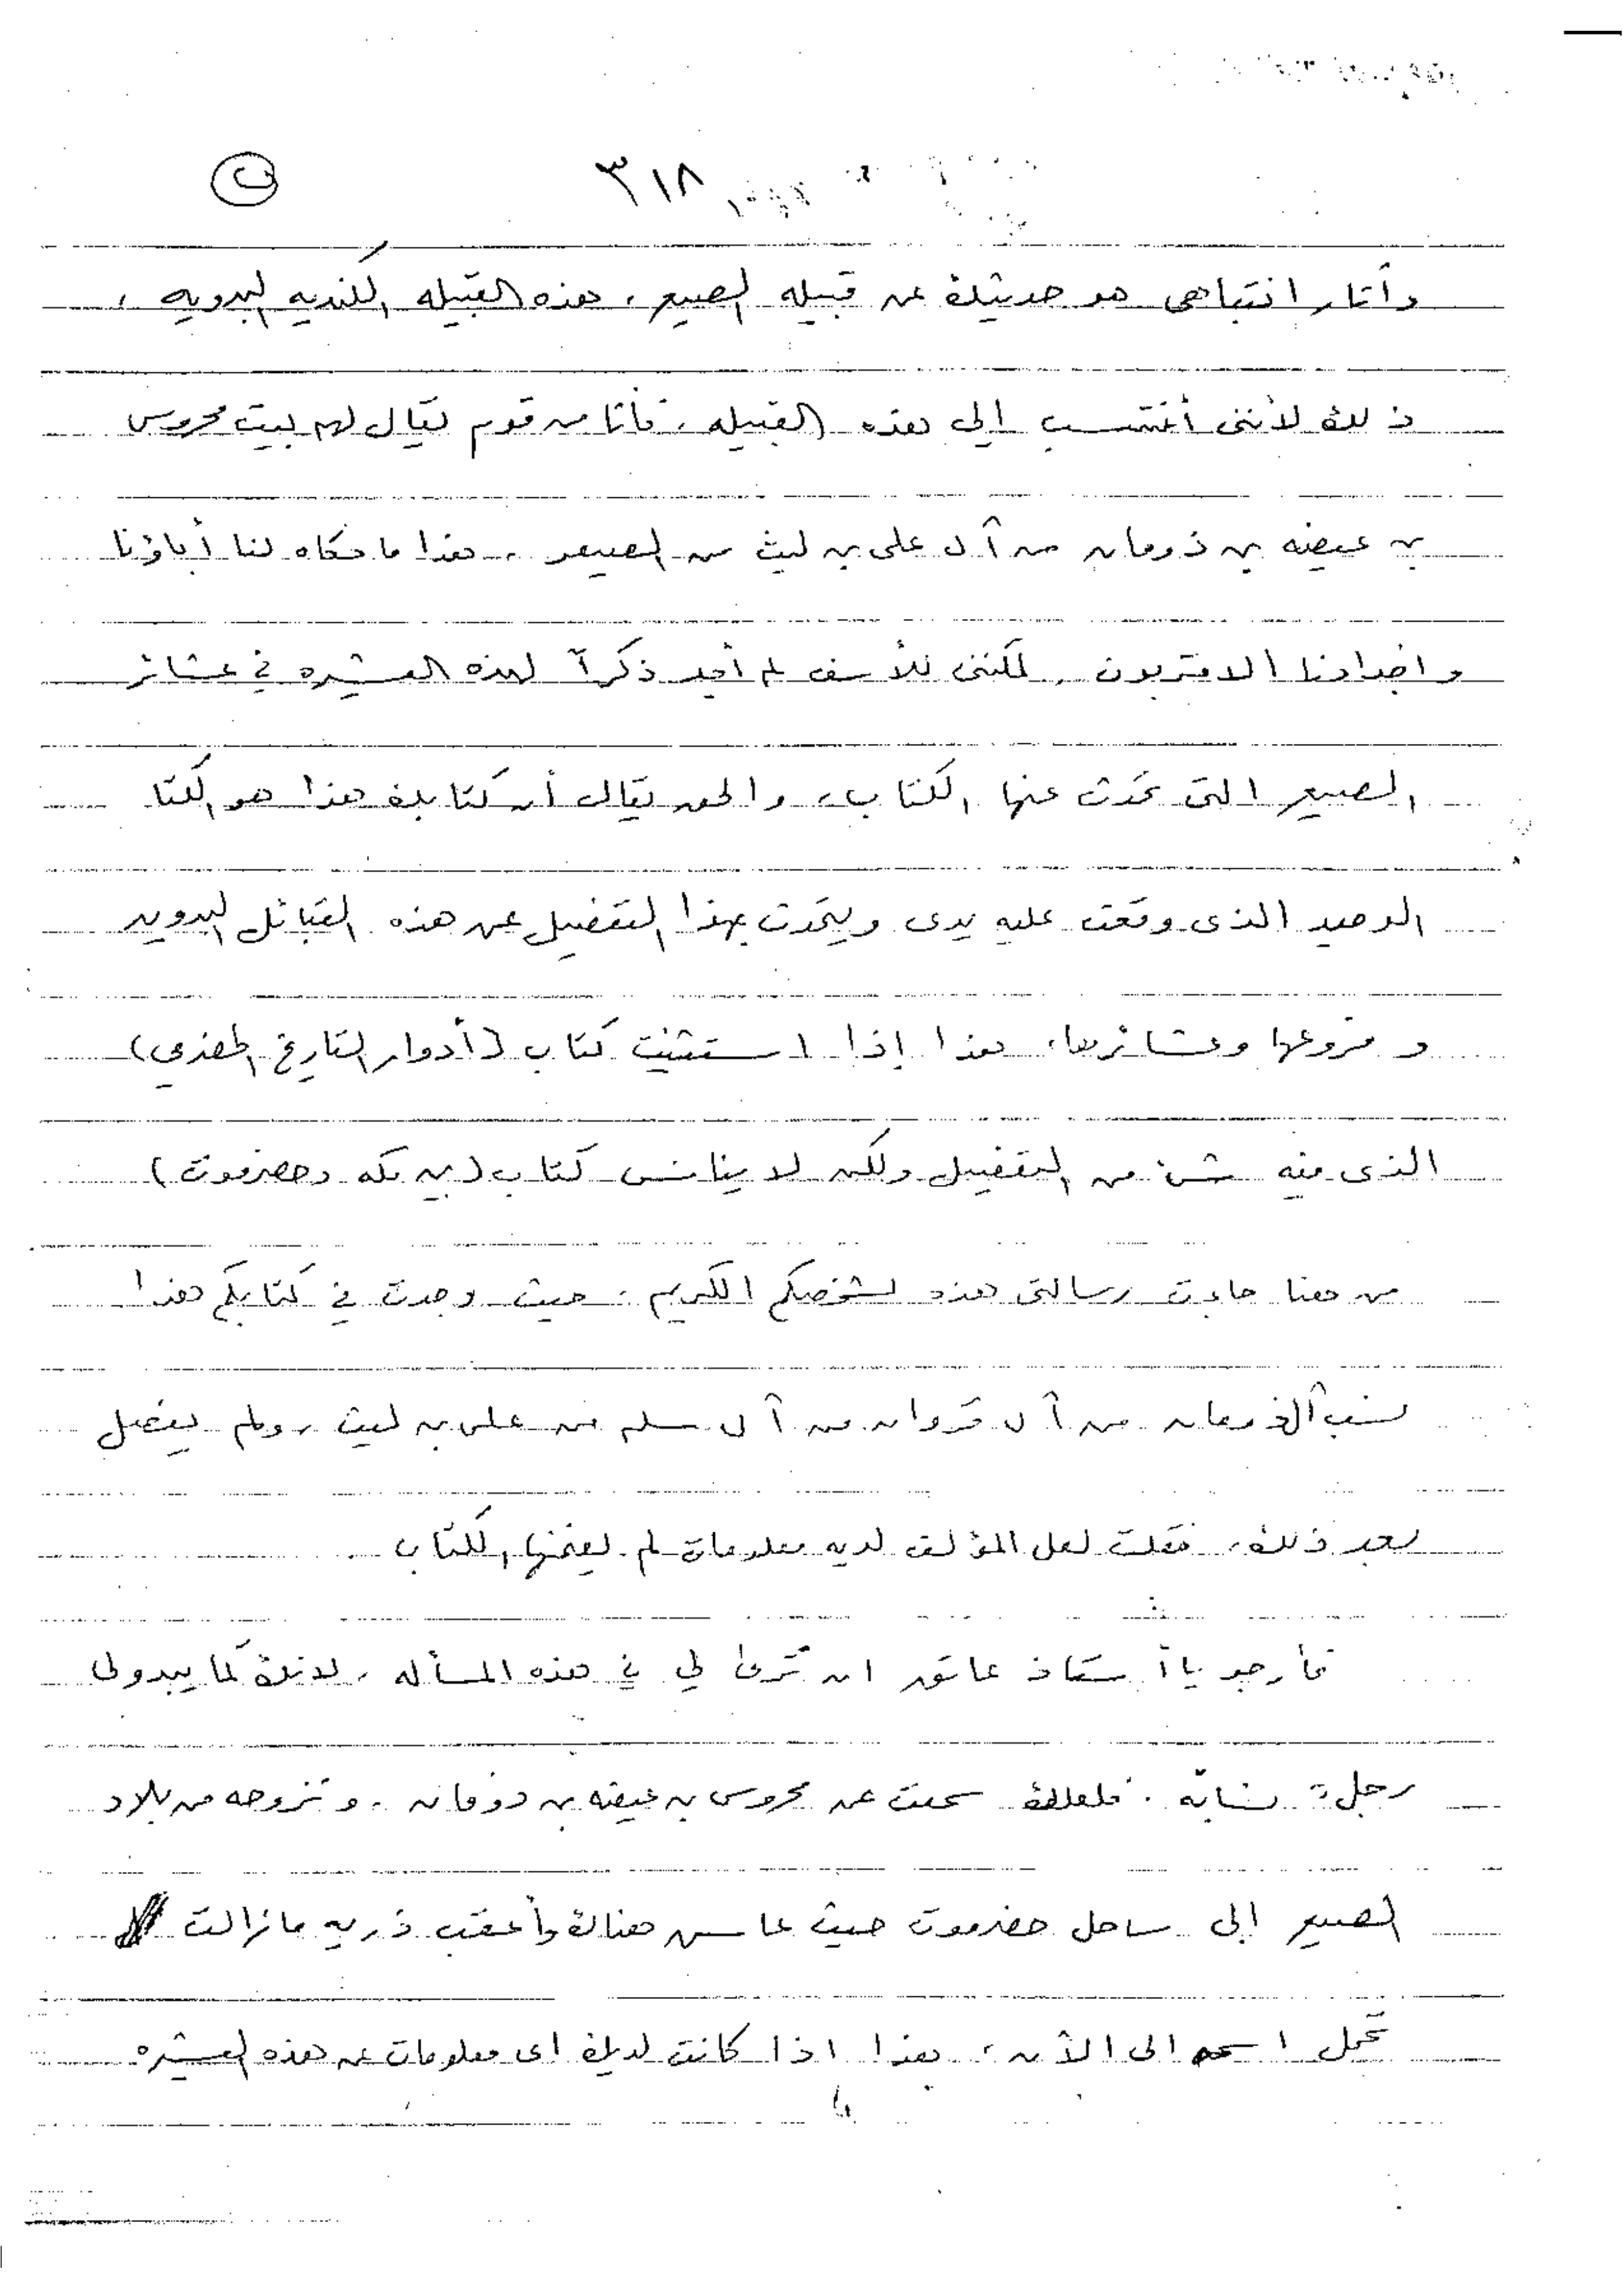 ٣١٨
وأثار انتباهى هو حديثك عن قبيله الصيعر، هذه القبيله الكنديه البدويه،
ذلك لأننى أنتسب إلى هذه القبيله، فأنا من قوم يقال لهم بيت محروس
بن عيضه بن ذومان من آل على بن ليث من الصيعر، هذا ما حكاه لنا أباؤنا
واجدادنا الاقربون. لكننى للأسف لم أجد ذكرآ لهذه العشيره في عشائر
الصيعر التى تحدث عنها الكتاب، والحق يقال أن كتابك هذا هو الكتا
الوحيد الذى وقعت عليه يدى ويتحدث بهذا التفضيل عن هذه القبائل البدويه
وفروعها وعشائرها، هذا إذا استثنيت كتاب (أدوار التاريخ الحضرمي)
الذى فيه شئ من التفضيل ولكن لا ينافس كتاب (بين مكه وحضرموت)
من هنا جاءت رسالتى هذه لشخصكم الكريم، حيث وجدت في كتابكم هذا
نسب آل ذومان من آل قروان من آل سلم من على بن ليث، ولم يفصل
بعد ذلك، فقلت لعل المؤلف لديه معلومات لم يضمنها الكتاب
فأرجو يا أستاذ عاتق ان ترى لي في هذه المسأله، لانك كما يبدولى
رجل نسابة. فلعلك سمعت عن محروس بن عيضه بن ذومان، ونزوحه من بلاد
الصيعر الى ساحل حضرموت حيث عاش هناك وأعقب ذريه مازالت
تحمل اسمه الى الآن، هذا اذا كانت لديك اى معلومات عن هذه العشيره